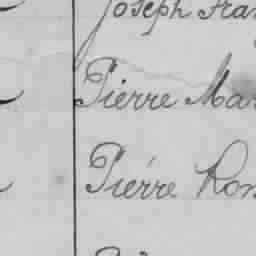 Joseph Fran
Pierre Mar
Pierre Rom